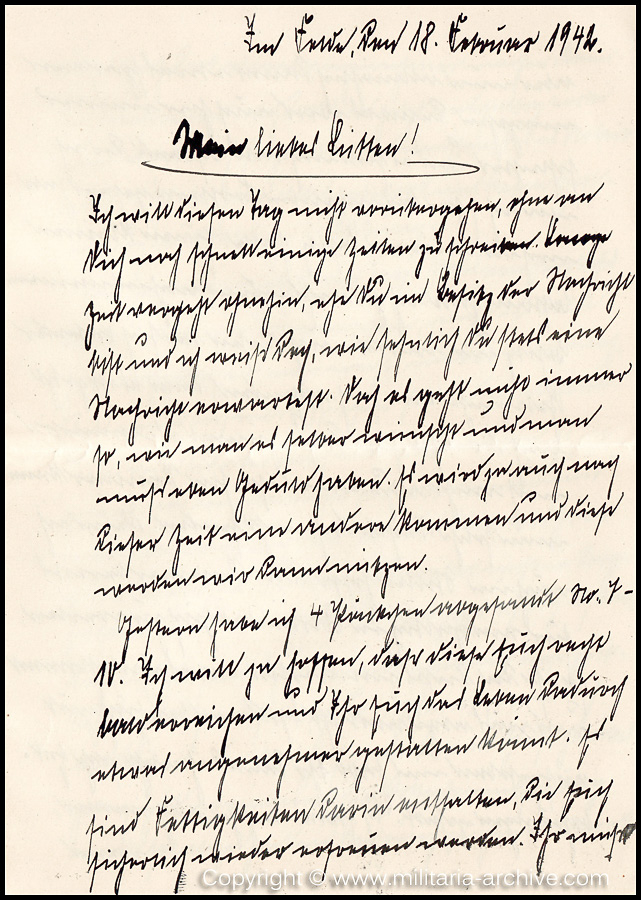 Im Felde, den 18. Februar 1942.
Mein liebes Lütten!
Ich will diesen Tag nicht vorübergehen, ohne an
Dich noch schnell einige Zeilen zu schreiben. Lange
Zeit vergeht ohnehin, ehe Du im Besitz der Nachricht
bist und ich weiß doch, wie sehnlich Du stets eine
Nachricht erwartest. Doch es geht nicht immer
so, wie man es selber wünscht und man
muß eben Geduld haben. Es wird ja auch nach
dieser Zeit eine andere kommen und diese
werden wir dann nützen.
Gestern habe ich 4 Päckchen abgesandt No. 7-
10. Ich will ja hoffen, daß diese Euch recht
bald erreichen und Ihr Euch das Leben dadurch
etwas angenehmer gestalten könnt. Es
sind Fettigkeiten darin enthalten, die Euch
sicherlich wieder erfreuen werden. Ihr müßt
Copyright © www.militaria-archive.com